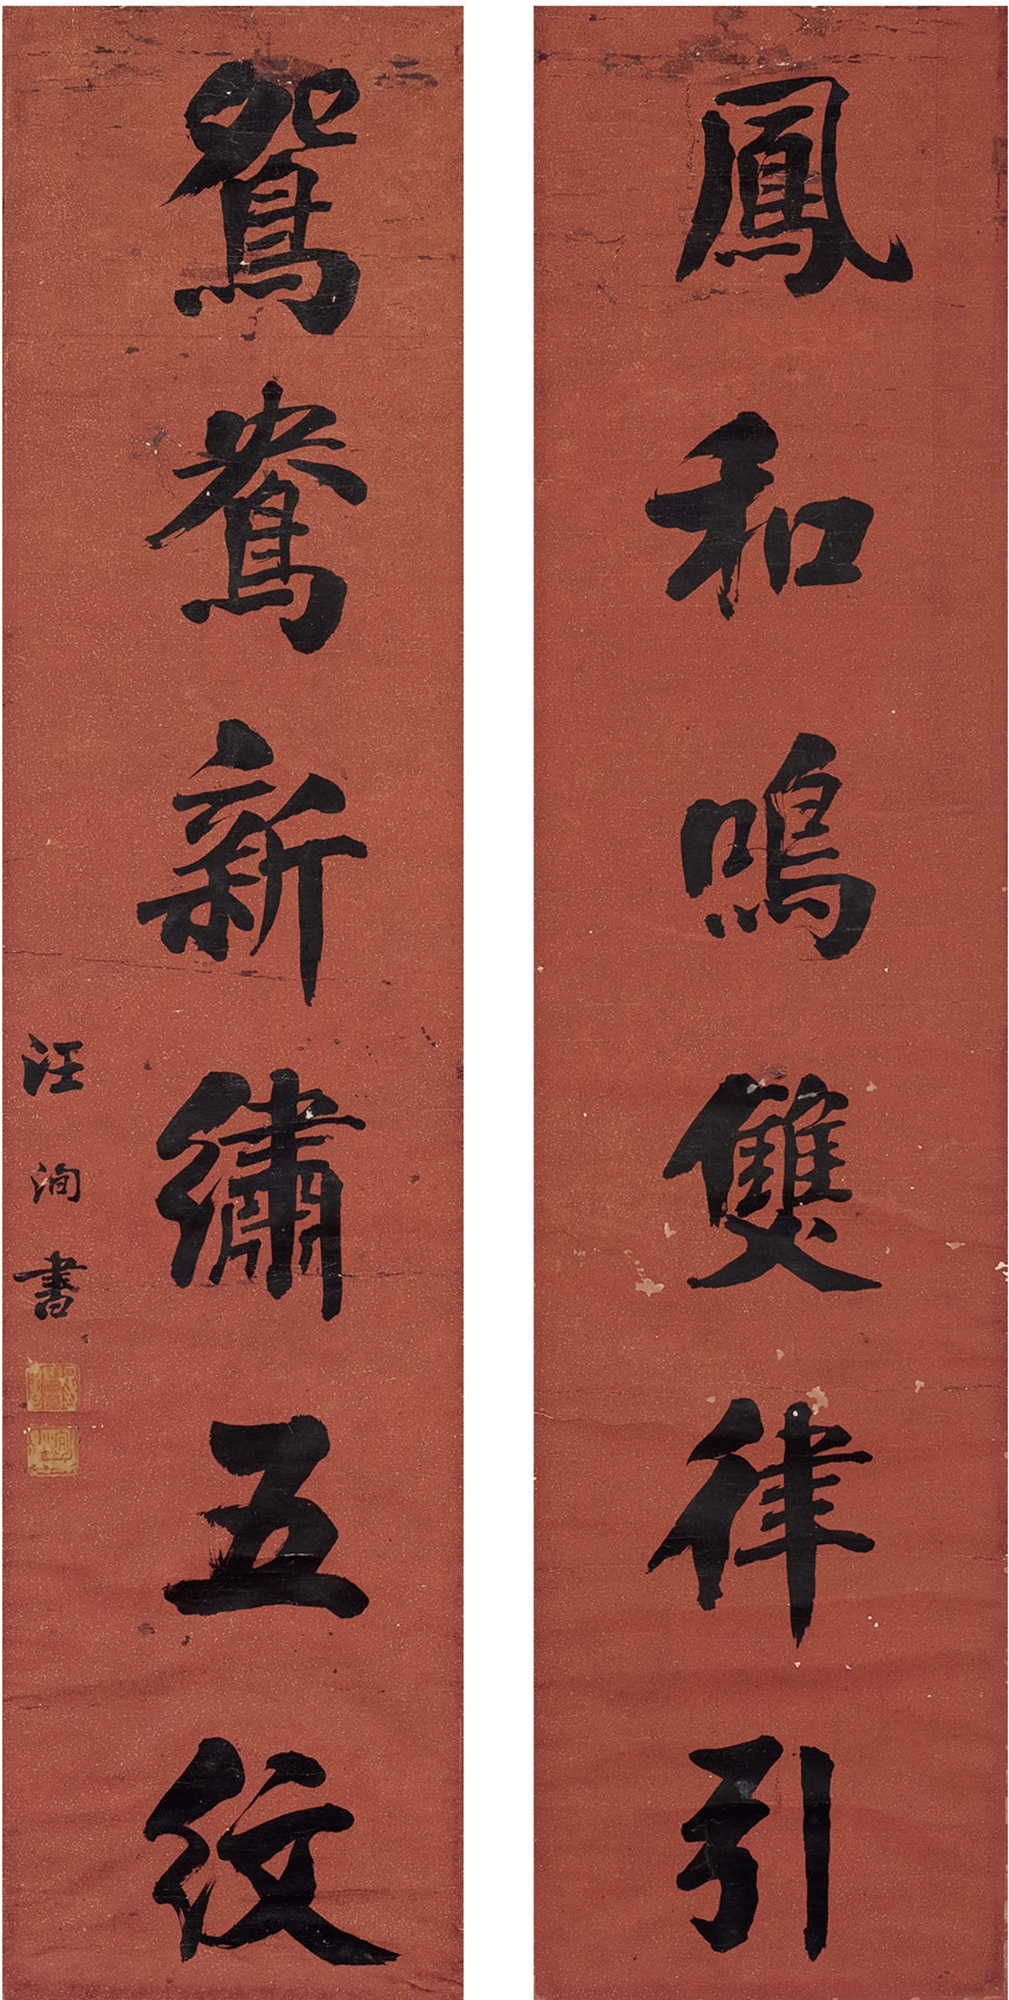 鳳和鳴雙律引
鴛鴦新繡五紋
汪洵書